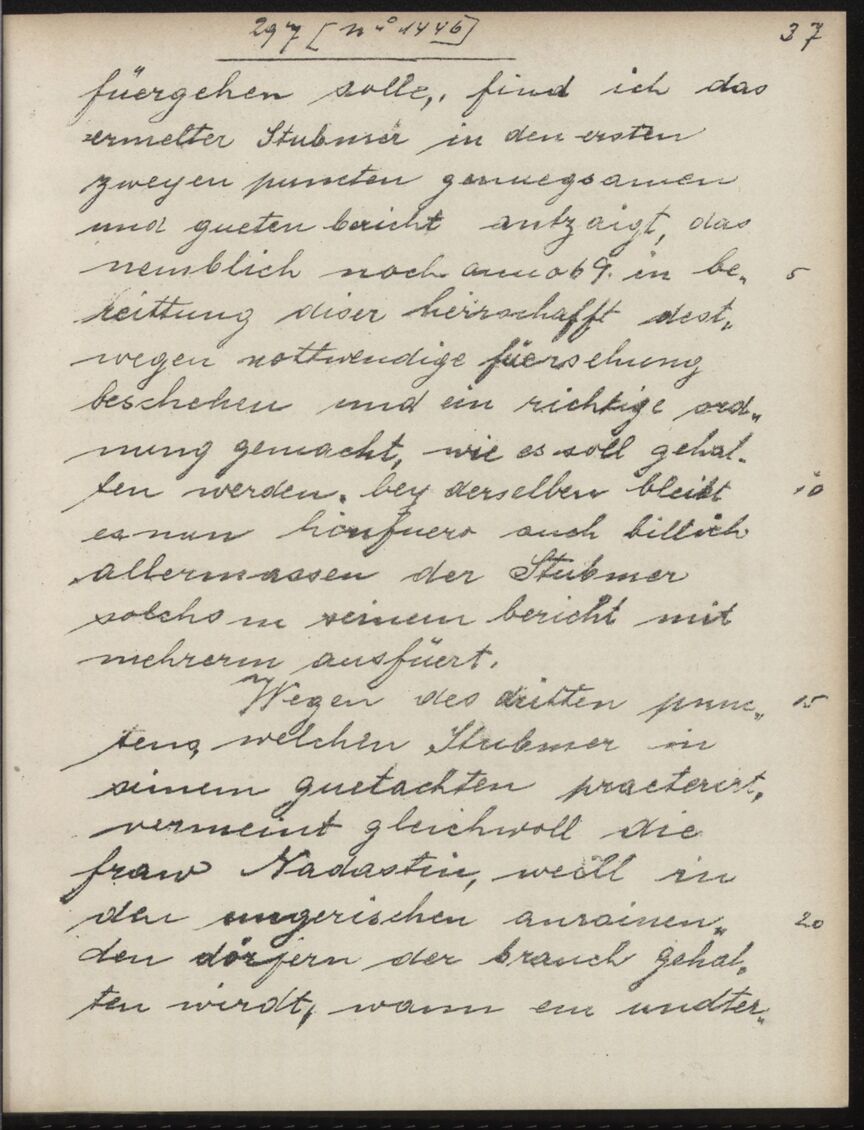 297 [nº 1446] 37
füergehen solle,. find ich das
ermelter Stubmer in den ersten
zweyen puncten genuegsamen
und gueten bericht antzaigt, das
nemblich noch anno 69. in be„ 5
reittung diser herrschafft dest„
wegen nottwendige füersehung
beschehen und ein richtige ord„
nung gemacht, wie es soll gehal-
ten werden. bey derselben bleibt 10
es nun hinfuero auch billich
allermassen der Stubmer
solchs in seinem bericht mit
mehrerm ausfüert.
Wegen des dritten punc„ 15
tens, welchen Stubmer in
seinem guetachten praeteriert,
vermeint gleichwoll die
fraw Nadastin, weill in
den ungerischen anrainen„ 20
den dörfern der brauch gehal„
ten wirdt, wann ein undter„